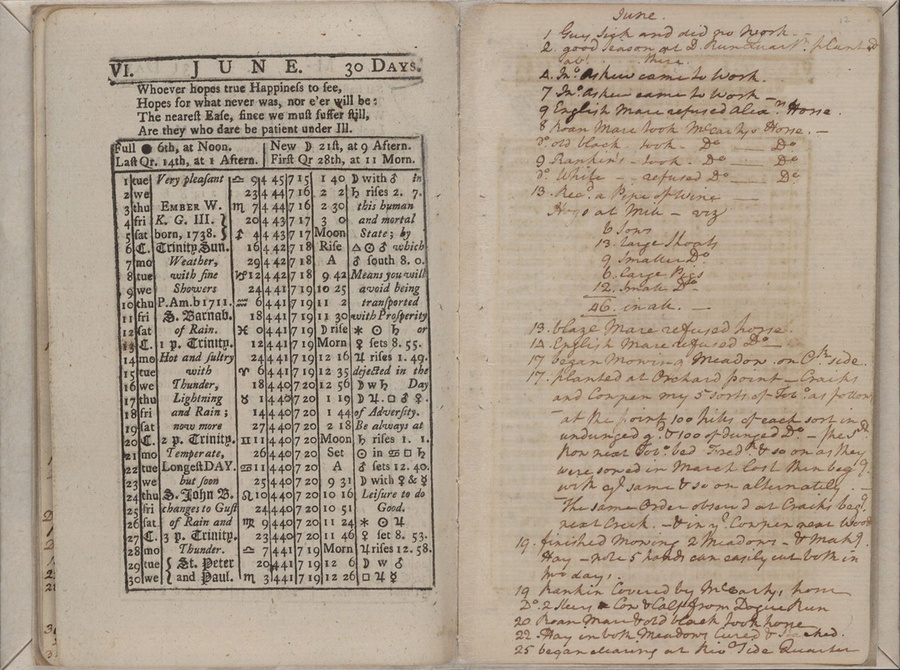 VI. JUNE. 30 DAYS.
Whoever hopes true Happineſs to ſee,
Hopes for what never was, nor e'er will be:
The neareſt Eaſe, ſince we muſt ſuffer ſtill,
Are they who dare be patient under Ill.
Full ● 6th, at Noon. New ☽ 21ſt, at 9 Aftern.
Laſt Qr. 14th, at 1 Aftern. Firſt Qr 28th, at 11 Morn.
1 tue Very pleaſant ♎ 9 4 45 7 15 1 40 ☽ with ♂ in
2 we 23 4 44 7 16 2 2 ♄ riſes 2. 7.
3 thu EMBER W. ♏ 7 4 44 7 16 2 30 this human
4 fri K. G. III. } 20 4 43 7 17 3 0 and mortal
5 ſat born, 1738. } ♐ 4 43 7 17 Moon State; by
6 C. Trinity Sun. 16 4 42 7 18 Riſe △ ☉ ♂ which
7 mo Weather, 29 4 42 7 18 A ♂ ſouth 8. 0.
8 tue with fine ♑ 12 4 42 7 18 9 42 Means you will
9 we Showers 24 4 41 7 19 10 25 avoid being
10 thu P.Am.b 1711. ♒ 6 4 41 7 19 11 2 tranſported
11 fri S. Barnab. 18 4 41 7 19 11 30 with Proſperity
12 ſat of Rain. ♓ 0 4 41 7 19 ☽ riſe ✶ ☉ ♄ or
13 C. 1 p. Trinity. 12 4 41 7 19 Morn ♀ ſets 8. 55.
14 mo Hot and ſultry 24 4 41 7 19 12 16 ♃ riſes 1. 49.
15 tue with ♈ 6 4 41 7 19 12 35 dejected in the
16 we Thunder, 18 4 40 7 20 12 56 ☽ w ♄ Day
17 thu Lightning ♉ 1 4 40 7 20 1 19 ☽ ♃. □ ♂ ♀.
18 fri and Rain; 14 4 40 7 20 1 44 of Adverſity.
19 ſat now more 27 4 40 7 20 2 18 Be always at
20 C. 2 p. Trinity. ♊ 11 4 40 7 20 Moon ♄ riſes 1. 1.
21 mo Temperate, 26 4 40 7 20 Set ☉ in ♋ □ ♄
22 tue Longeſt DAY. ♋ 11 4 40 7 20 A ♂ ſets 12. 40.
23 we but ſoon 25 4 40 7 20 9 31 ☽ with ♀ & ☿
24 thu S. John B. ♌ 10 4 40 7 20 10 16 Leiſure to do
25 fri changes to Guſt 24 4 40 7 20 10 51 Good.
26 ſat of Rain and ♍ 9 4 40 7 20 11 24 ✶ ☉ ♃
27 C. 3 p. Trinity. 23 4 40 7 20 11 46 ♀ ſet 8. 53.
28 mo Thunder. ♎ 7 4 41 7 19 Morn ♃ riſes 12. 58.
29 tue { St. Peter 20 4 41 7 19 12 6 ☽ w ♂
30 we { and Paul. ♏ 3 4 41 7 19 12 26 □ ♃ ☿
June.
1 Guy Sick and did no Work.
2. good Season at D. Run Quartr. planted
tobo. there.
4. Jno. Askew came to Work.
7 Jno. Askew came to Work
9 English Mare refused Alexa.rs Horse
8 Roan Mare took McCarty's Horse.
Do. old black took. Do Do
9 Rankin's took. Do Do
Do. White refused Do Do
13. Recd. a Pipe of Wine
Hogs at Mill viz
6 Sows
13. large Shoats
9 Smaller Do
6. large Pigs
12. Small Do
46. in all.
13. blaze Mare refused horse.
14. English Mare refused Do
17 began Mowing Meadow on Ck. side
17. planted at Orchard point Creeks
and Cowpen my 5 sorts of Tobo. as follows
at the point 100 hills of each sort in
undunged gd. & 100 of dunged Do. the
Row next Tobo. bed & so on as they
were sowed in March last then beg.g
with ye. same & so on alternately.
The same Order observd at Creeks beg.g
next Creek. & in ye. Cowpen near Woods
19. finished Mowing 2 Meadows & Makg.
Hay note 5 hands can easily cut both in
two days.
19 Rankin Covered by McCartys horse
Do. 2 Steers a Cow & Calf from Dogue Run
20 Roan Mare & old black took horse
22. Hay in both Meadows Cured & Stacked.
25 began clearing at Rivr. Side Quarter